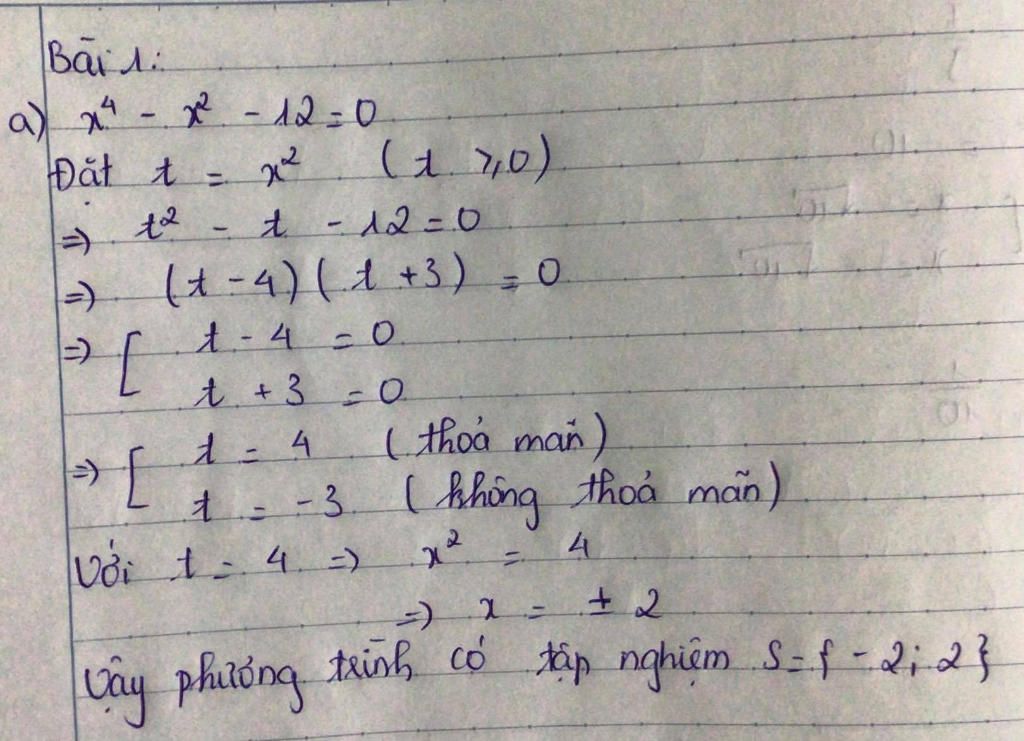 Bài 1:
a) x⁴ - x² - 12 = 0
Đặt t = x² (t ≥ 0)
=> t² - t - 12 = 0
=> (t - 4)(t + 3) = 0
=> [ t - 4 = 0
t + 3 = 0
=> [ t = 4 (thoả mãn)
t = -3 (không thoả mãn)
Với t = 4 => x² = 4
=> x = ± 2
Vậy phương trình có tập nghiệm S = { - 2; 2 }